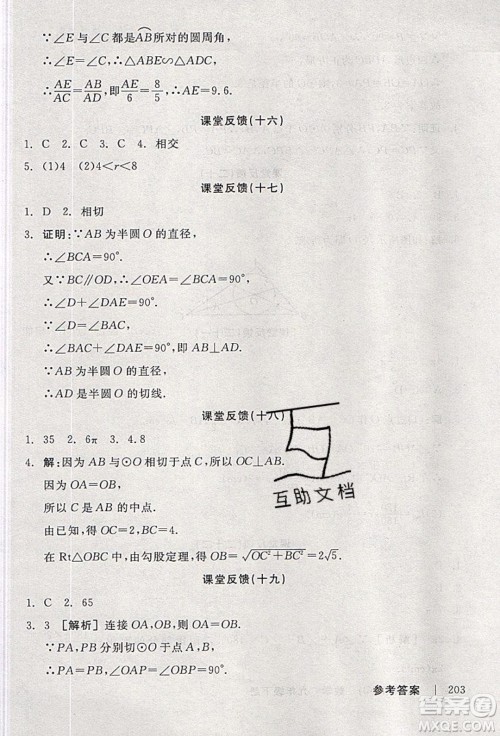 ∵∠E 与∠C 都是AB所对的圆周角,
∴∠E=∠C,∴△ABE∽△ADC,
∴AE/AC=AB/AD,即AE/6=8/5,∴AE=9.6.
课堂反馈(十六)
1. C 2. C 3. C 4. 相交
5. (1)4 (2)4<r<8
课堂反馈(十七)
1. D 2. 相切
3. 证明:∵AB 为半圆 O 的直径,
∴∠BCA=90°.
又∵BC∥OD,∴∠AEO=90°,
∴∠D+∠DAE=90°.
∵∠D=∠BAC,∴∠BAC+∠DAE=90°,
∴∠DAB=90°,即 DA⊥AB.
∵AB 为半圆 O 的直径,
∴AD 是半圆 O 的切线.
课堂反馈(十八)
1. 35 2. 6π 3. 4.8
4. 解:因为 AB 与⊙O 相切于点 C,所以 OC⊥AB.
因为 OA=OB,
所以 C 是 AB 的中点.
由已知,得 OC=2,BC=4.
在 Rt△OBC 中,由勾股定理,得 OB=√(OC²+BC²)=2√5.
互助文档
课堂反馈(十九)
1. C 2. 65
3. 3 [解析] 连接 OA,OB,则 OA=OB.
∵PA,PB为⊙O的切线,
参考答案 203
答案圈